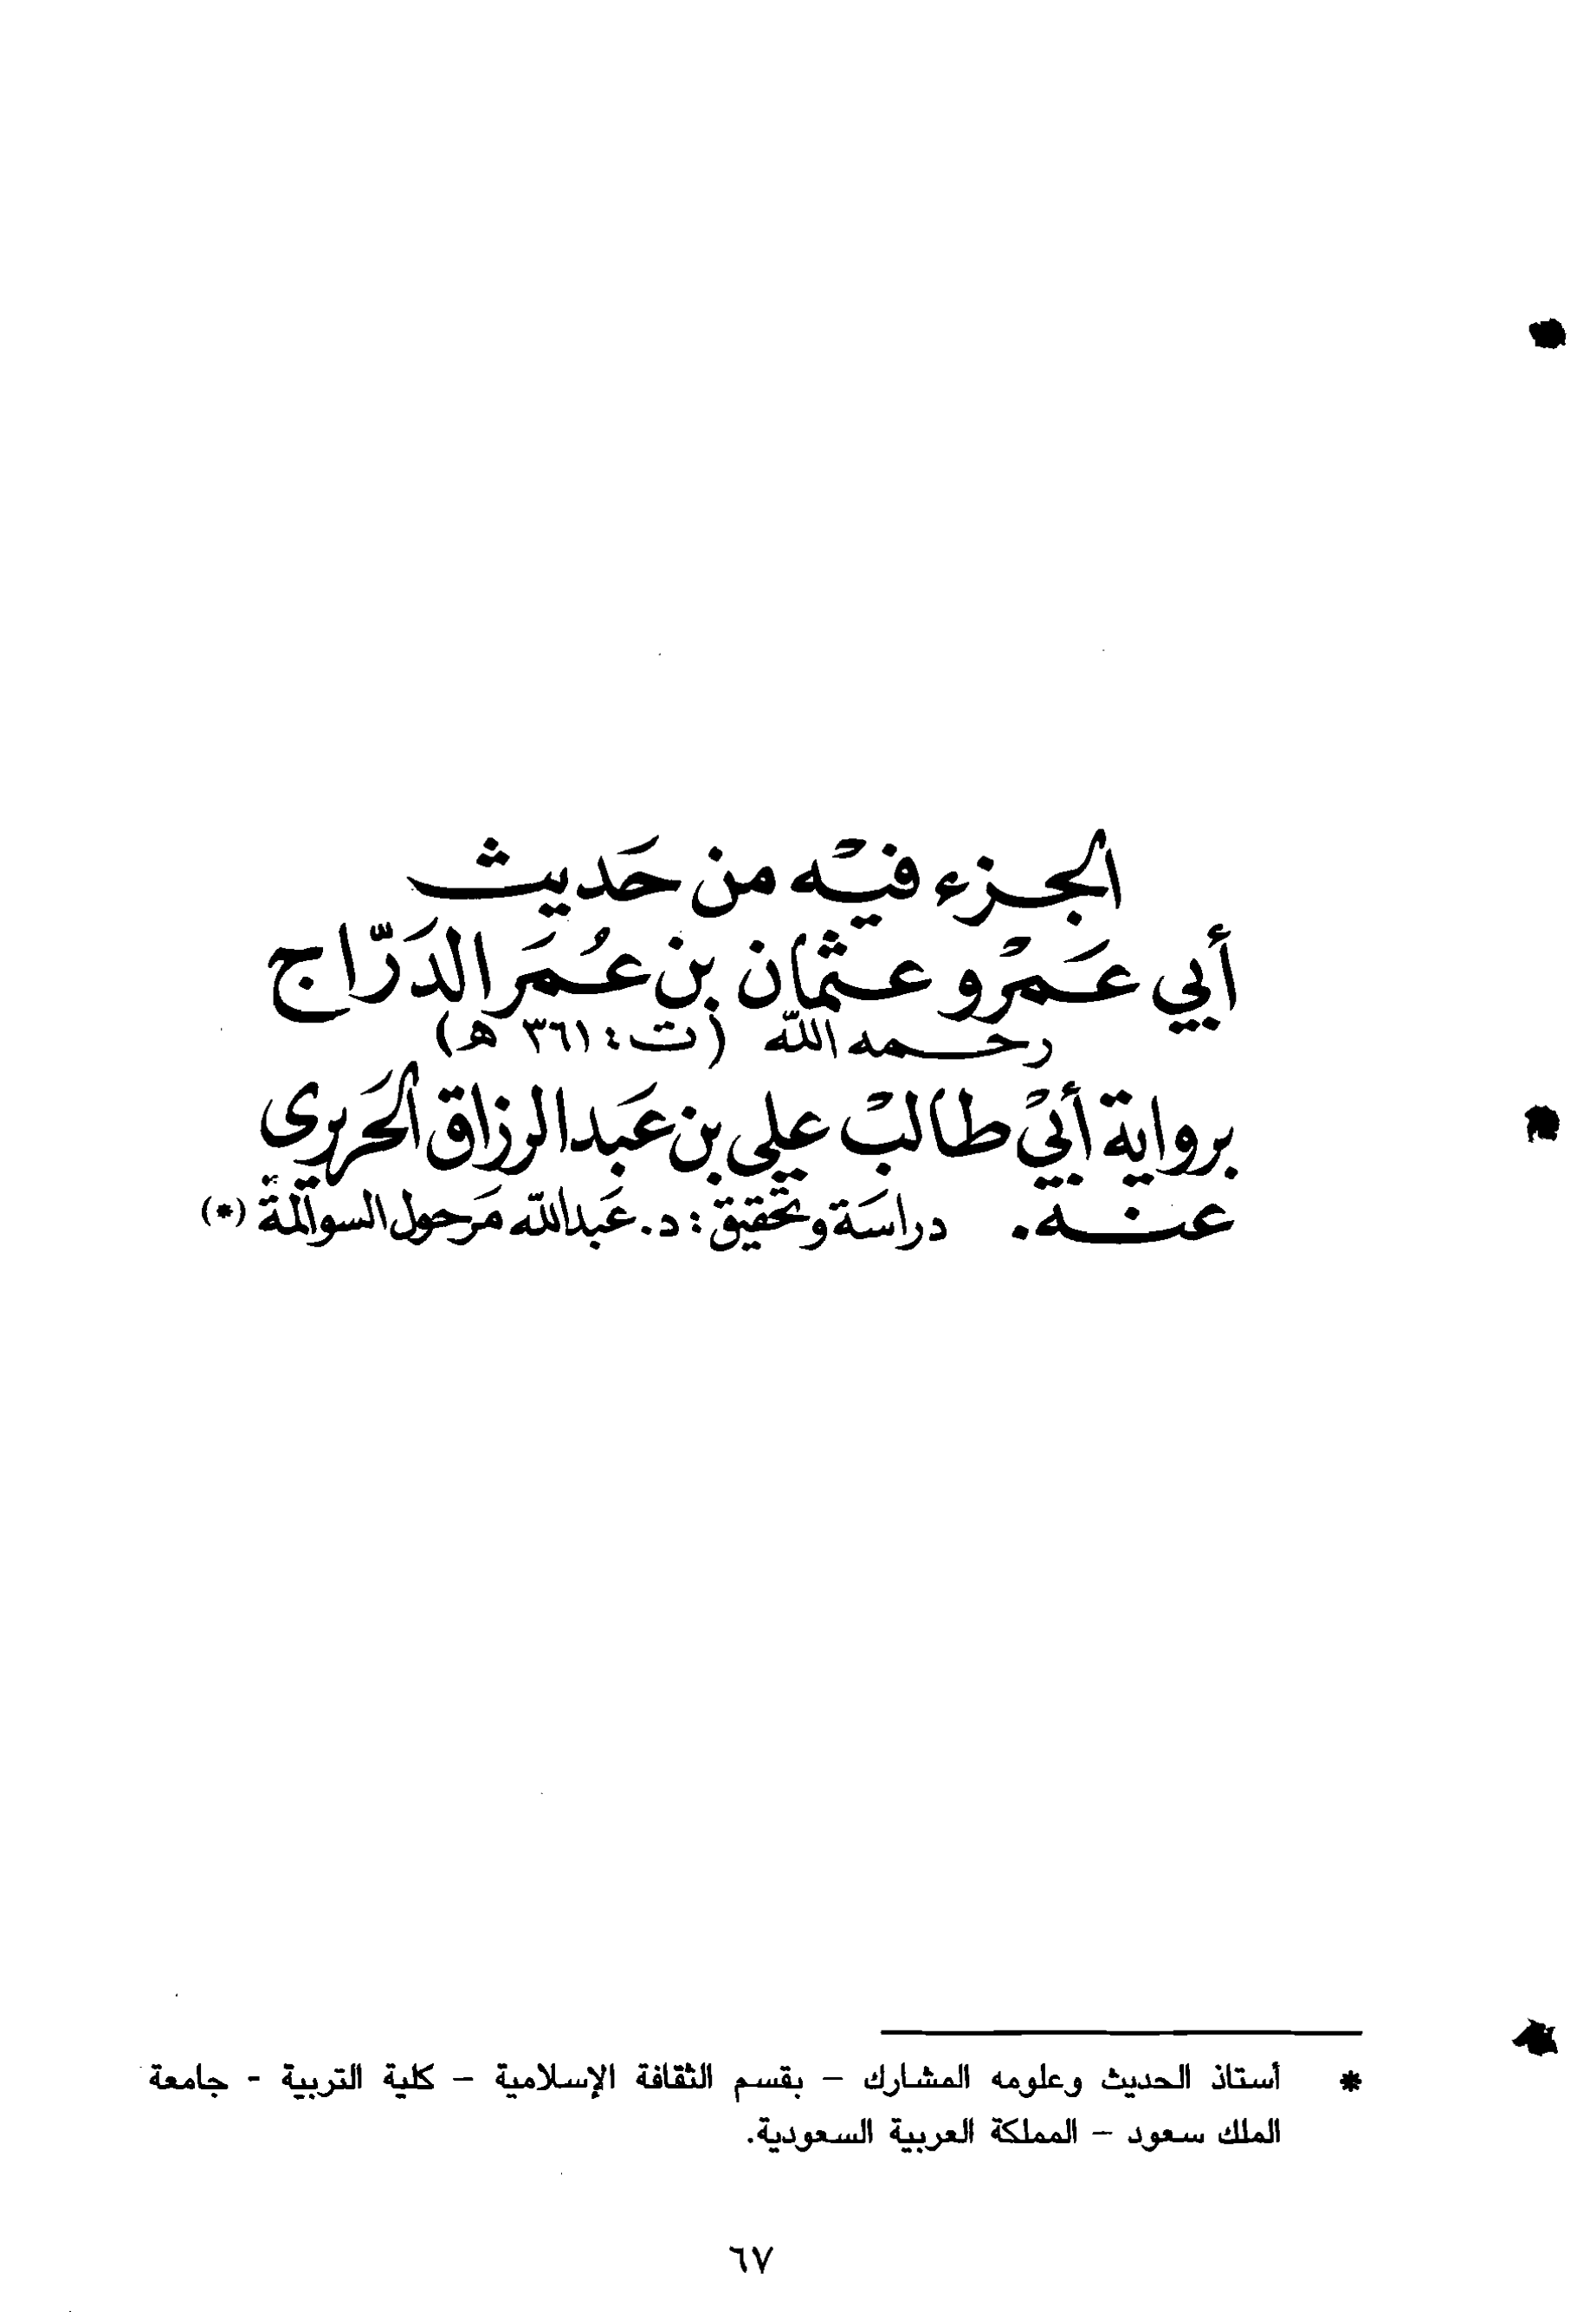 الجزء فيْه من حَديث
أبي عَمرْو عثمان بن عُمَر الدَرّاج
رحمه الله (ت: ٣٦١ هـ)
برواية أبيْ طالبْ علي بن عَبد الرزاق الحَريرى
عنه. دراسَة وتحقيق: د. عَبدالله مَرحول السوالمة (*)
* أستاذ الحديث وعلومه المشارك – بقسم الثقافة الإسلامية – كلية التربية - جامعة
الملك سعود – المملكة العربية السعودية.
٦٧